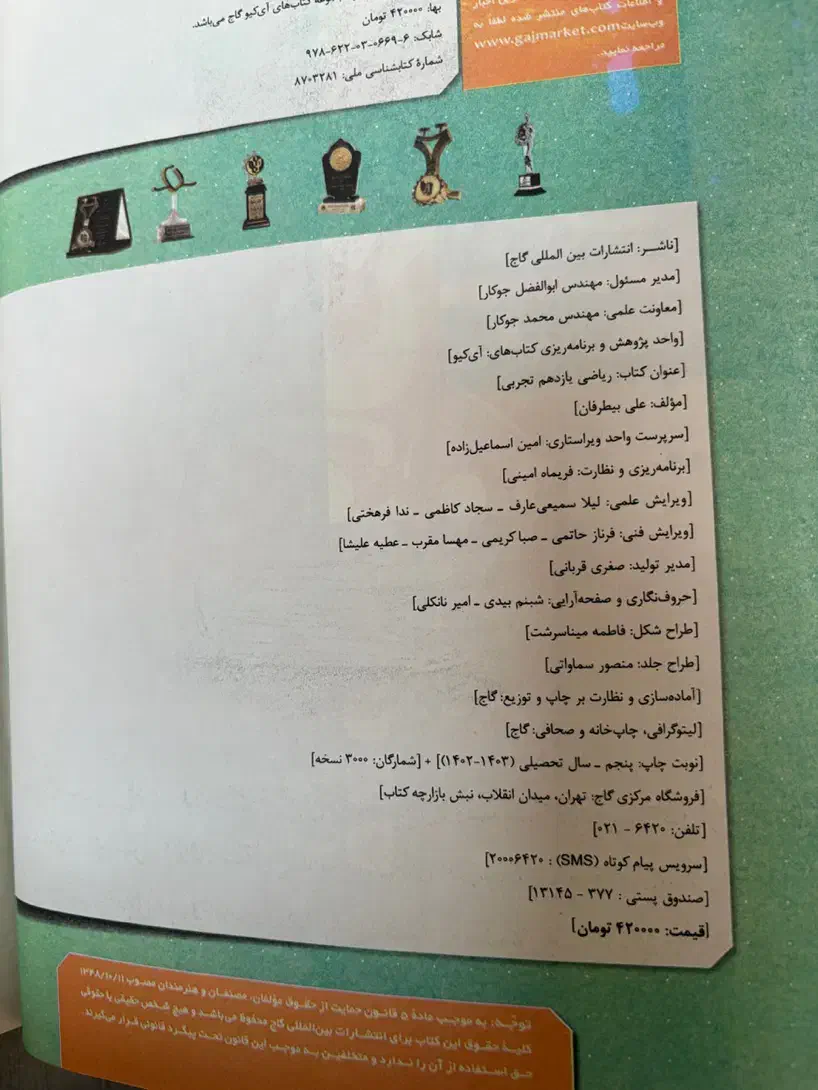 مجموعه کتاب‌های آی‌کیو گاج می‌باشد.
بها: ۴۲۰۰۰۰ تومان
شابک: ۶-۰۶۶۹-۰۳-۶۲۲-۹۷۸
شمارهٔ کتابشناسی ملی: ۸۷۰۳۲۸۱
و اطلاعات کتاب‌های منتشر شده لطفاً به
وب‌سایت www.gajmarket.com
مراجعه نمایید.
[ناشــر: انتشارات بین المللی گاج]
[مدیر مسئول: مهندس ابوالفضل جوکار]
[معاونت علمی: مهندس محمد جوکار]
[واحد پژوهش و برنامه‌ریزی کتاب‌های: آی‌کیو]
[عنوان کتاب: ریاضی یازدهم تجربی]
[مؤلف: علی بیطرفان]
[سرپرست واحد ویراستاری: امین اسماعیل‌زاده]
[برنامه‌ریزی و نظارت: فریماه امینی]
[ویرایش علمی: لیلا سمیعی‌عارف ـ سجاد کاظمی ـ ندا فرهختی]
[ویرایش فنی: فرناز حاتمی ـ صبا کریمی ـ مهسا مقرب ـ عطیه علیشا]
[مدیر تولید: صغری قربانی]
[حروف‌نگاری و صفحه‌آرایی: شبنم بیدی ـ امیر نانکلی]
[طراح شکل: فاطمه میناسرشت]
[طراح جلد: منصور سماواتی]
[آماده‌سازی و نظارت بر چاپ و توزیع: گاج]
[لیتوگرافی، چاپ‌خانه و صحافی: گاج]
[نوبت چاپ: پنجم ـ سال تحصیلی (۱۴۰۳-۱۴۰۲)] + [شمارگان: ۳۰۰۰ نسخه]
[فروشگاه مرکزی گاج: تهران، میدان انقلاب، نبش بازارچه کتاب]
[تلفن: ۶۴۲۰ - ۰۲۱]
[سرویس پیام کوتاه (SMS) : ۲۰۰۰۶۴۲۰]
[صندوق پستی : ۳۷۷ - ۱۳۱۴۵]
[قیمت: ۴۲۰۰۰۰ تومان]
توجّه: به موجب مادهٔ ۵ قانون حمایت از حقوق مؤلفان، مصنفان و هنرمندان مصوب ۱۳۴۸/۱۰/۱۱
کلیهٔ حقوق این کتاب برای انتشارات بین‌المللی گاج محفوظ می‌باشد و هیچ شخص حقیقی یا حقوقی
حق استفاده از آن را ندارد و متخلفین به موجب این قانون تحت پیگرد قانونی قرار می‌گیرند.